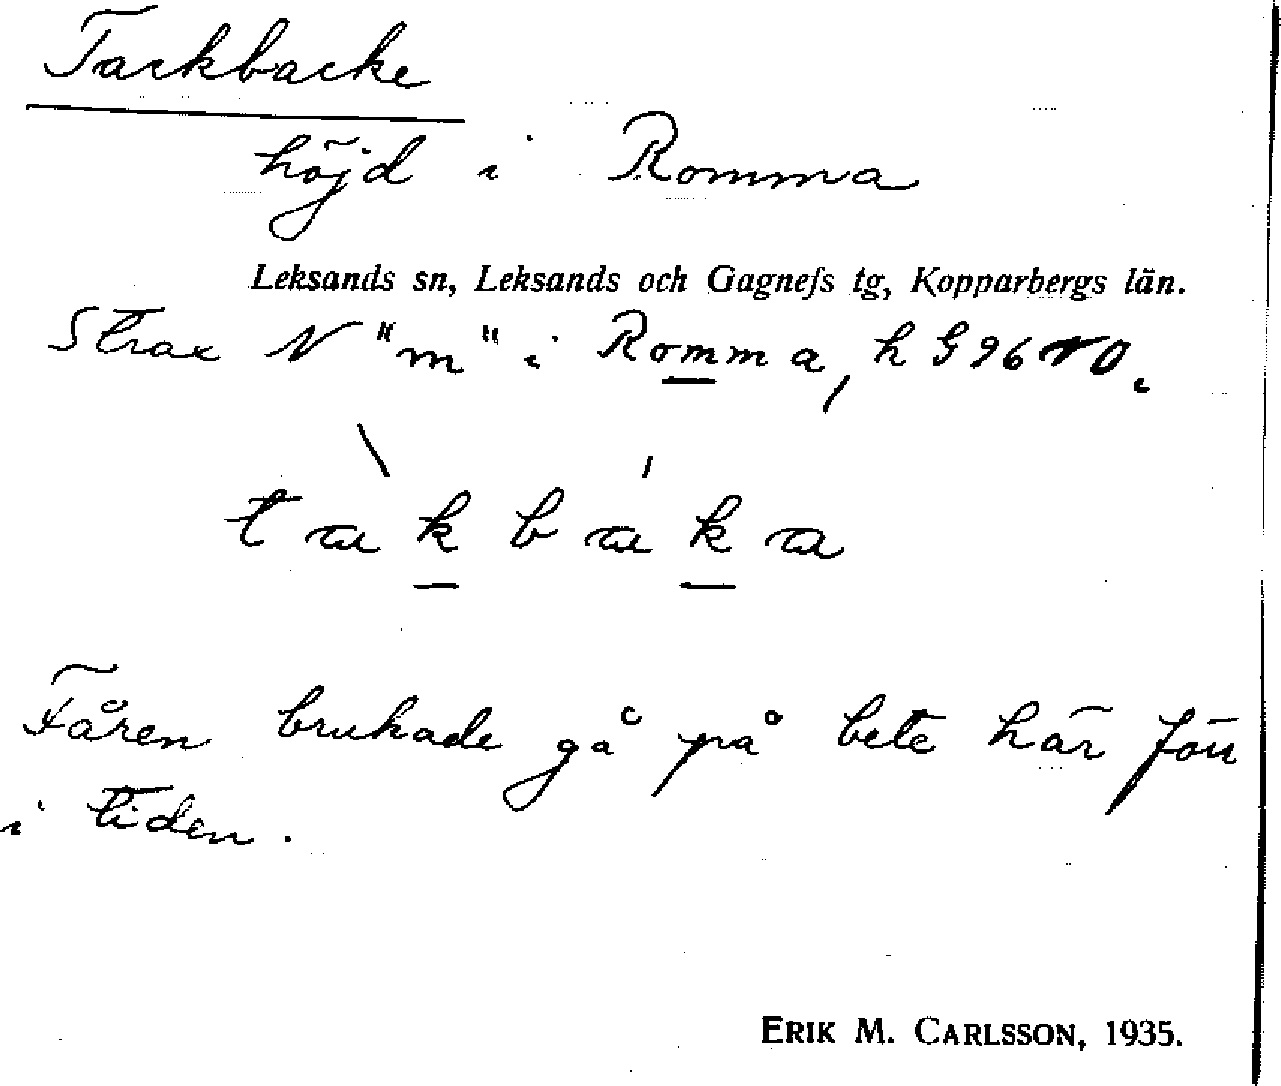 Tackbacke
höjd i Romma
Leksands sn, Leksands och Gagnefs tg, Kopparbergs län.
Strax N "m" i Romma, h G 96 NO.
takbaka
Fåren brukade gå på bete här förr
i tiden.
ERIK M. CARLSSON, 1935.